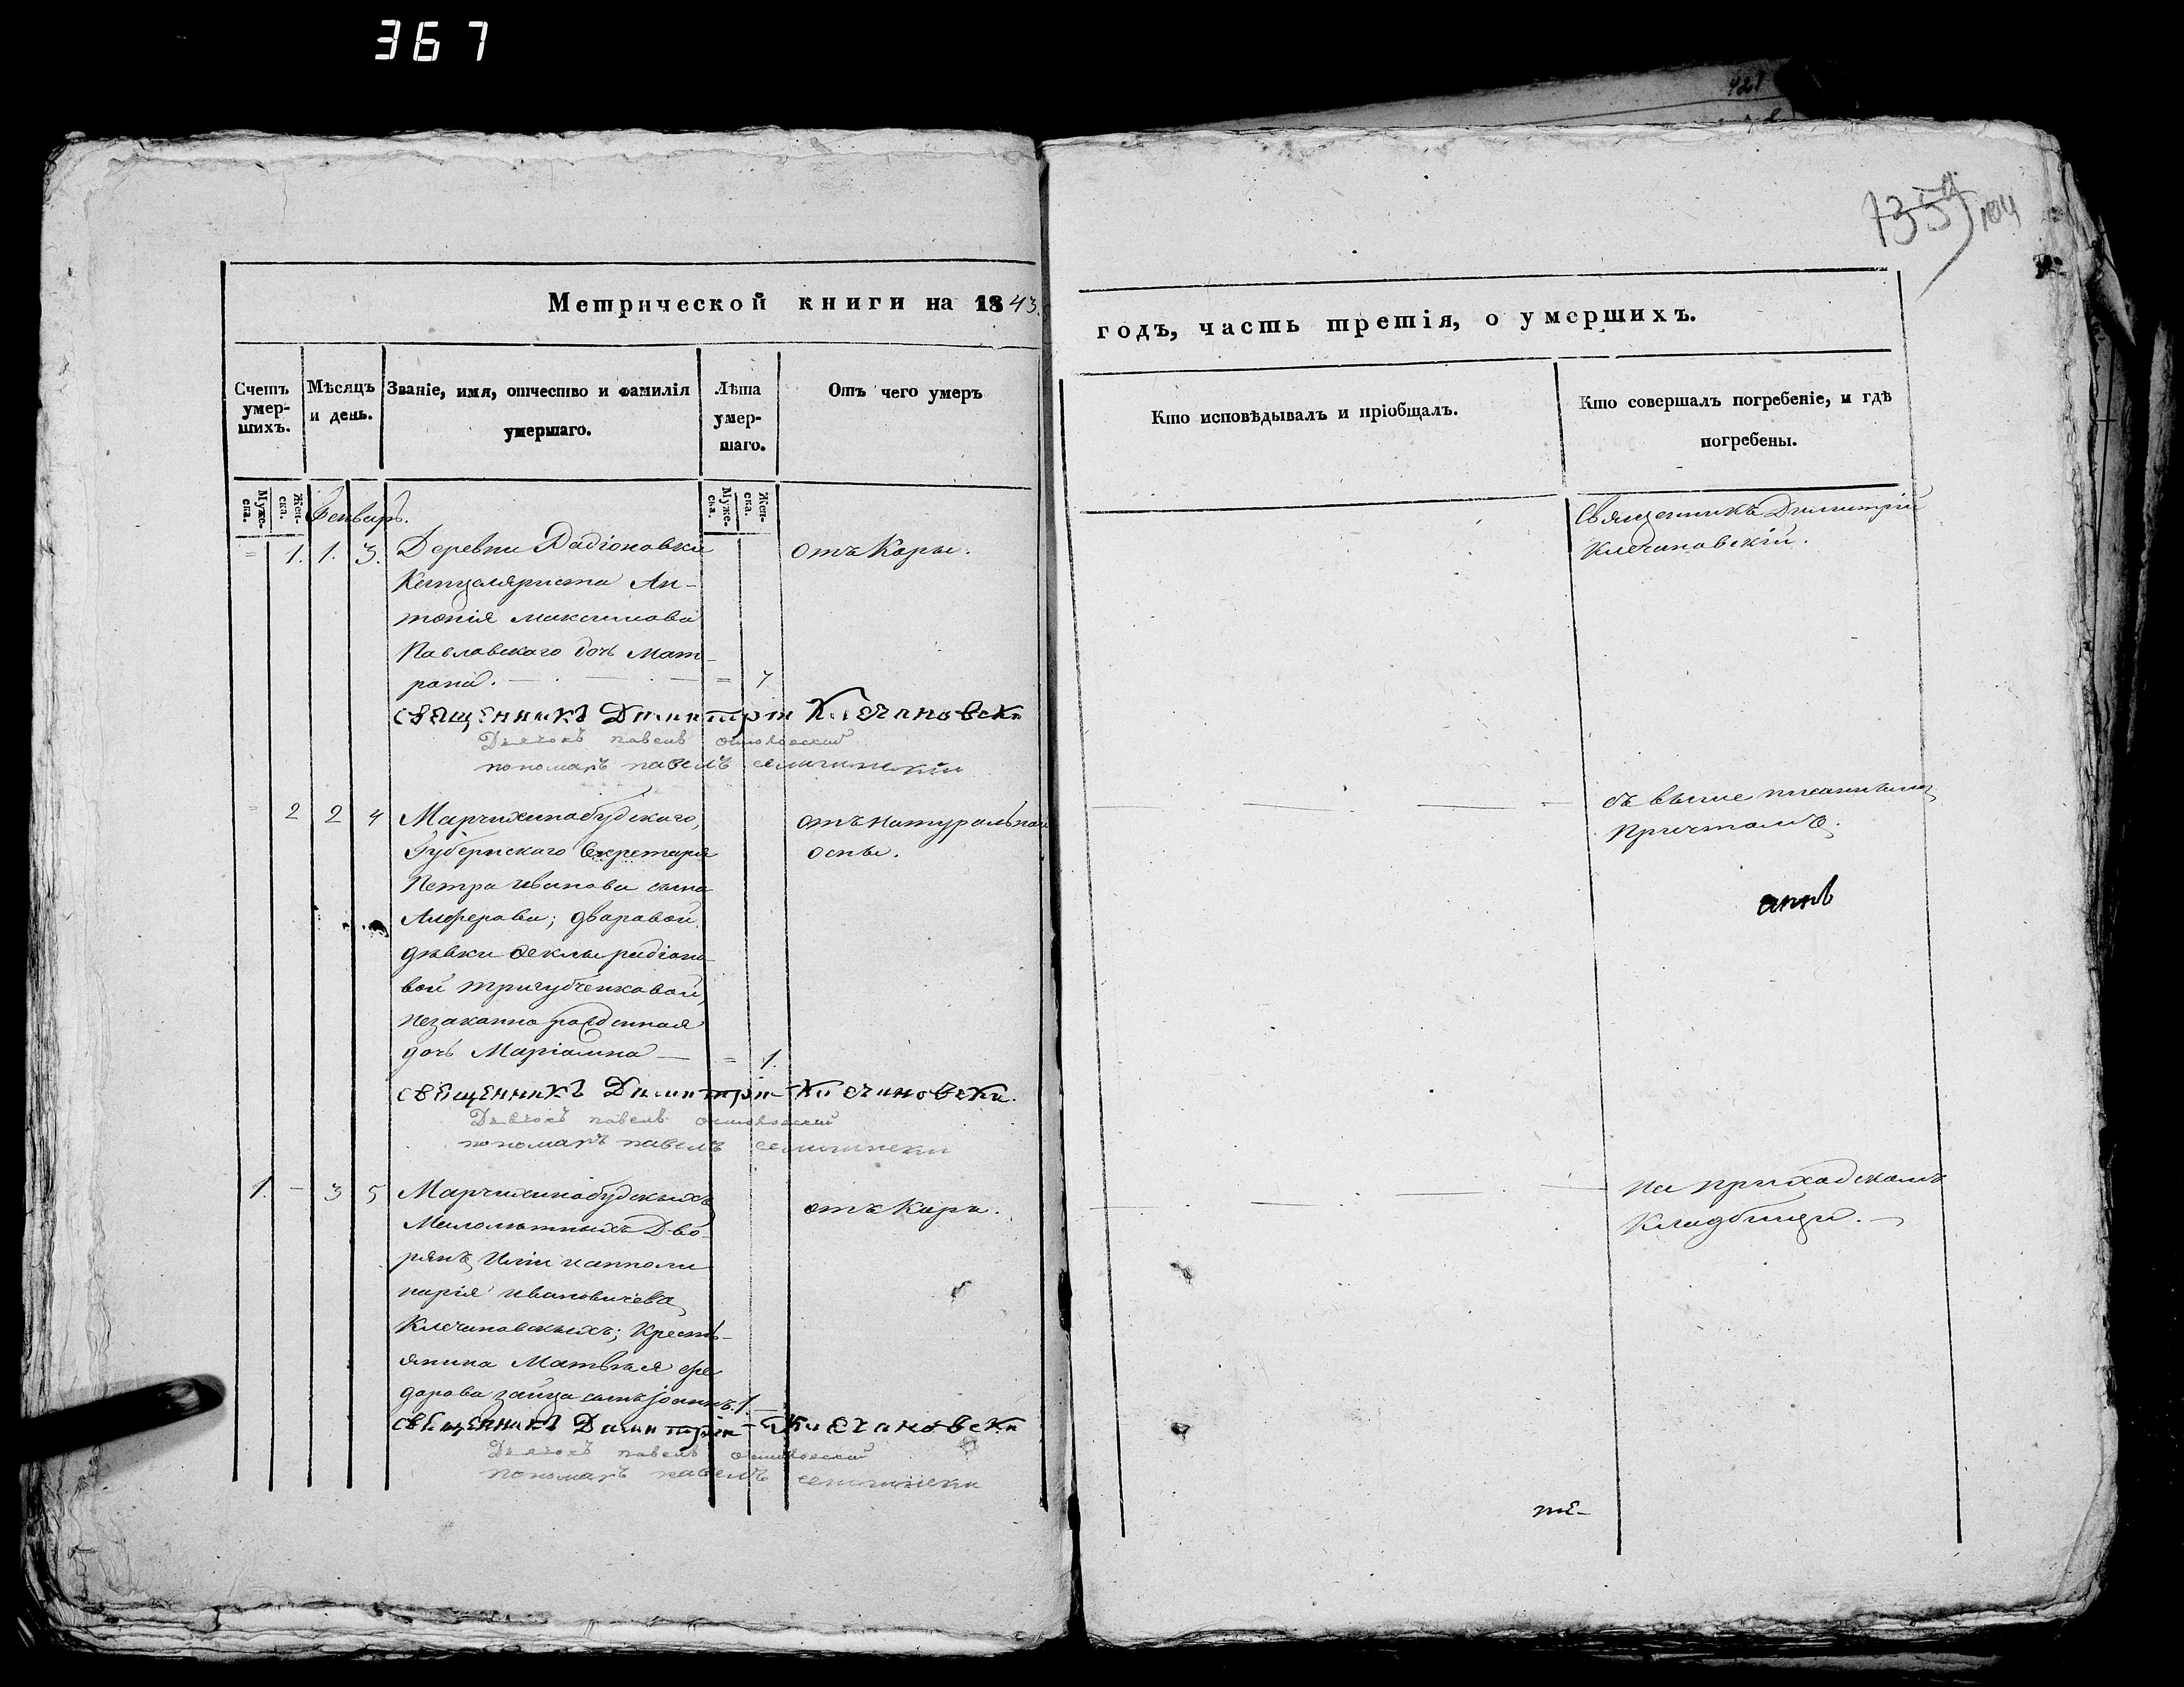 367
421
1359 104
Метрической книги на 1843.
годъ, часть третія, о умершихъ.
Счетъ умер-шихъ.
Мѣсяцъ и день.
Званіе, имя, отчество и фамилія умершаго.
Лѣта умер-шаго.
Отъ чего умеръ
Кто исповѣдывалъ и пріобщалъ.
Кто совершалъ погребеніе, и гдѣ погребены.
Муже-ска.
Жен-ска.
Муже-ска.
Жен-ска.
Генваръ.
= 1. 1. 3. Деревни Радіоновки
Канцеляриста Ан-
тонія Максимова
Павловскаго дочь Мат-
рона. — = 7
отъ Коры.
Священникъ Димитрій
Клечановскій.
священникъ Димитрій Клечановски
Дьячокъ павелъ
пономаръ павелъ селичински
= 2 2 4 Марчихинобудскаго,
Губернскаго Секретаря
Петра Иванова сына
Алферова; дваровой
дѣвки Феклы радіоно-
вой Тригубченковой,
незаконно рожденная
дочь Маріамна — = 1.
отъ натуральной
оспы.
съ выше писаннымъ
Причтомъ.
священникъ Димитрій Клечановски.
Дьячокъ павелъ
пономаръ павелъ селичински
1. - 3 5 Марчихинобудскихъ
Маломѣтныхъ Дво-
рянъ Иліи и апполи
нарія Ивановичева
Клечановскихъ; Кресть-
янина Матвѣя Фе
дорова зайца сынъ Іоаннъ. 1. —
отъ Кори.
На приходскомъ
Кладбищи. —
священникъ Димитрій Клечановски
Дьячокъ павелъ
пономаръ павелъ селичински